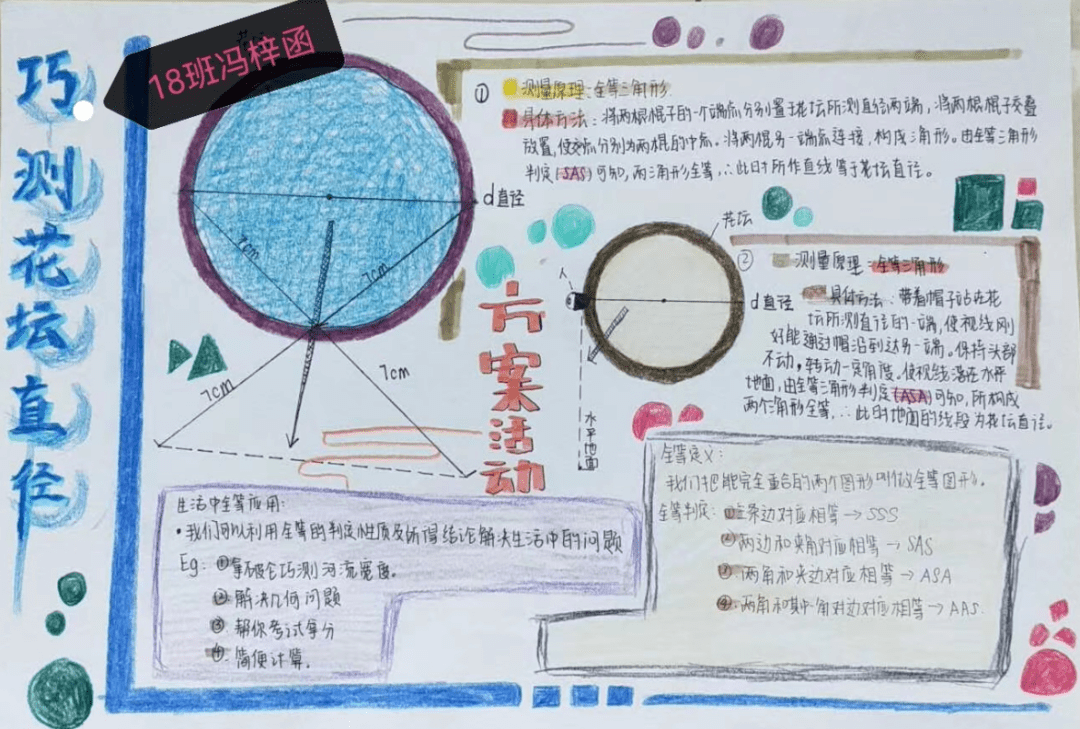 巧测花坛直径
18班冯梓函
d直径
7cm
7cm
7cm
7cm
方案活动
① 测量原理:全等三角形
具体方法:将两根棍子的一个端点分别置于花坛所测直径两端,将两根棍子交叠
放置,使交点分别为两棍的中点。将两棍另一端点连接,构成三角形。由全等三角形
判定(SAS)可知,两三角形全等,∴此时所作直线等于花坛直径。
花坛
人
d直径
水平地面
② 测量原理:全等三角形
具体方法:带着帽子站在花
坛所测直径的一端,使视线刚
好能通过帽沿到达另一端。保持头部
不动,转动一定角度,使视线落在水平
地面,由全等三角形判定(ASA)可知,所构成
两个三角形全等,∴此时地面的线段为花坛直径。
生活中全等应用:
·我们可以利用全等的判定性质及所得结论解决生活中的问题
Eg:①拿破仑巧测河流宽度。
②解决几何问题
③帮你考试拿分
④简便计算。
全等定义:
我们把能完全重合的两个图形叫做全等图形。
全等判定:①三条边对应相等→SSS
②两边和夹角对应相等→SAS
③两角和夹边对应相等→ASA
④两角和其中一角对边对应相等→AAS.